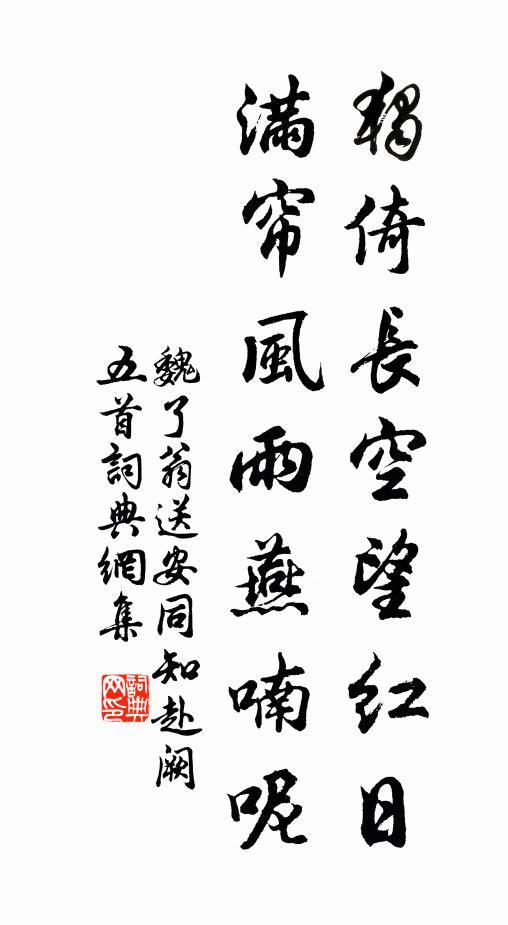 獨倚長空望紅日
滿帘風雨燕喃呢
魏了翁送安同知赴阙
五首詞典網集
詞典网印